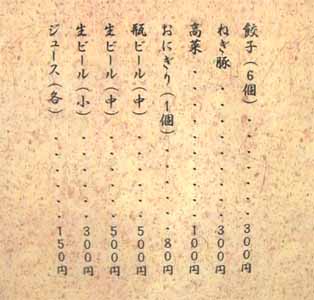 餃子（6個）・・・・・・・300円
ねぎ豚・・・・・・・・・300円
高菜・・・・・・・・・・100円
おにぎり（1個）・・・・・80円
瓶ビール（中）・・・・・・500円
生ビール（中）・・・・・・500円
生ビール（小）・・・・・・300円
ジュース（各）・・・・・・150円